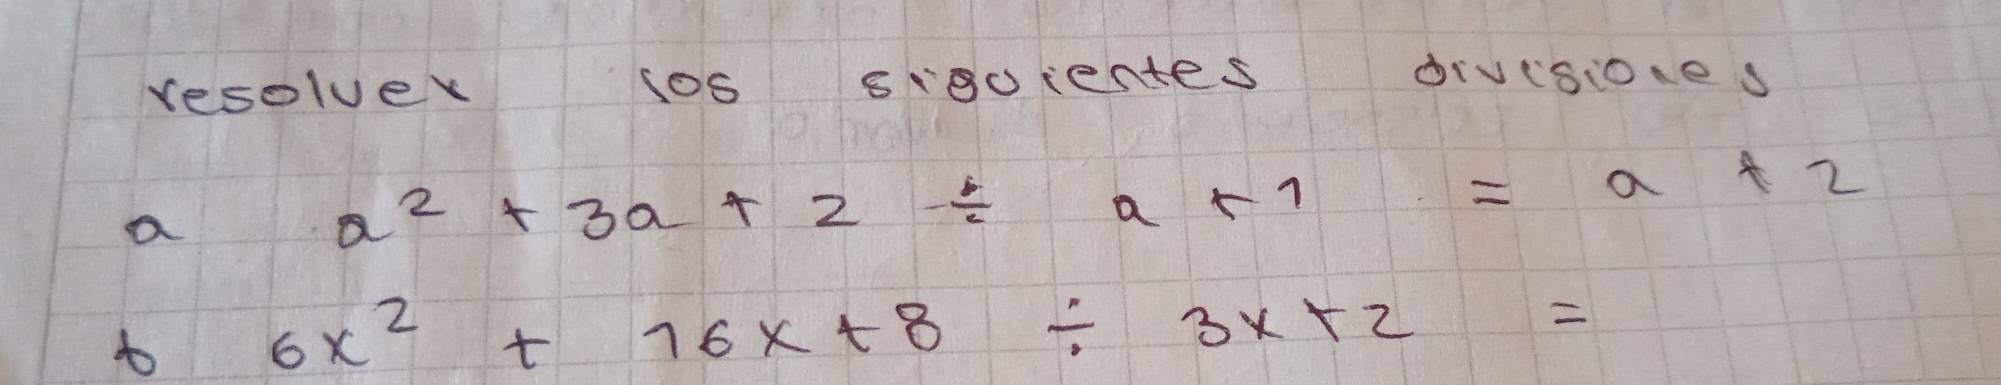 resolver los siguientes divisiones
a a² + 3a + 2 ÷ a + 1 = a + 2
b 6x² + 16x + 8 ÷ 3x + 2 =